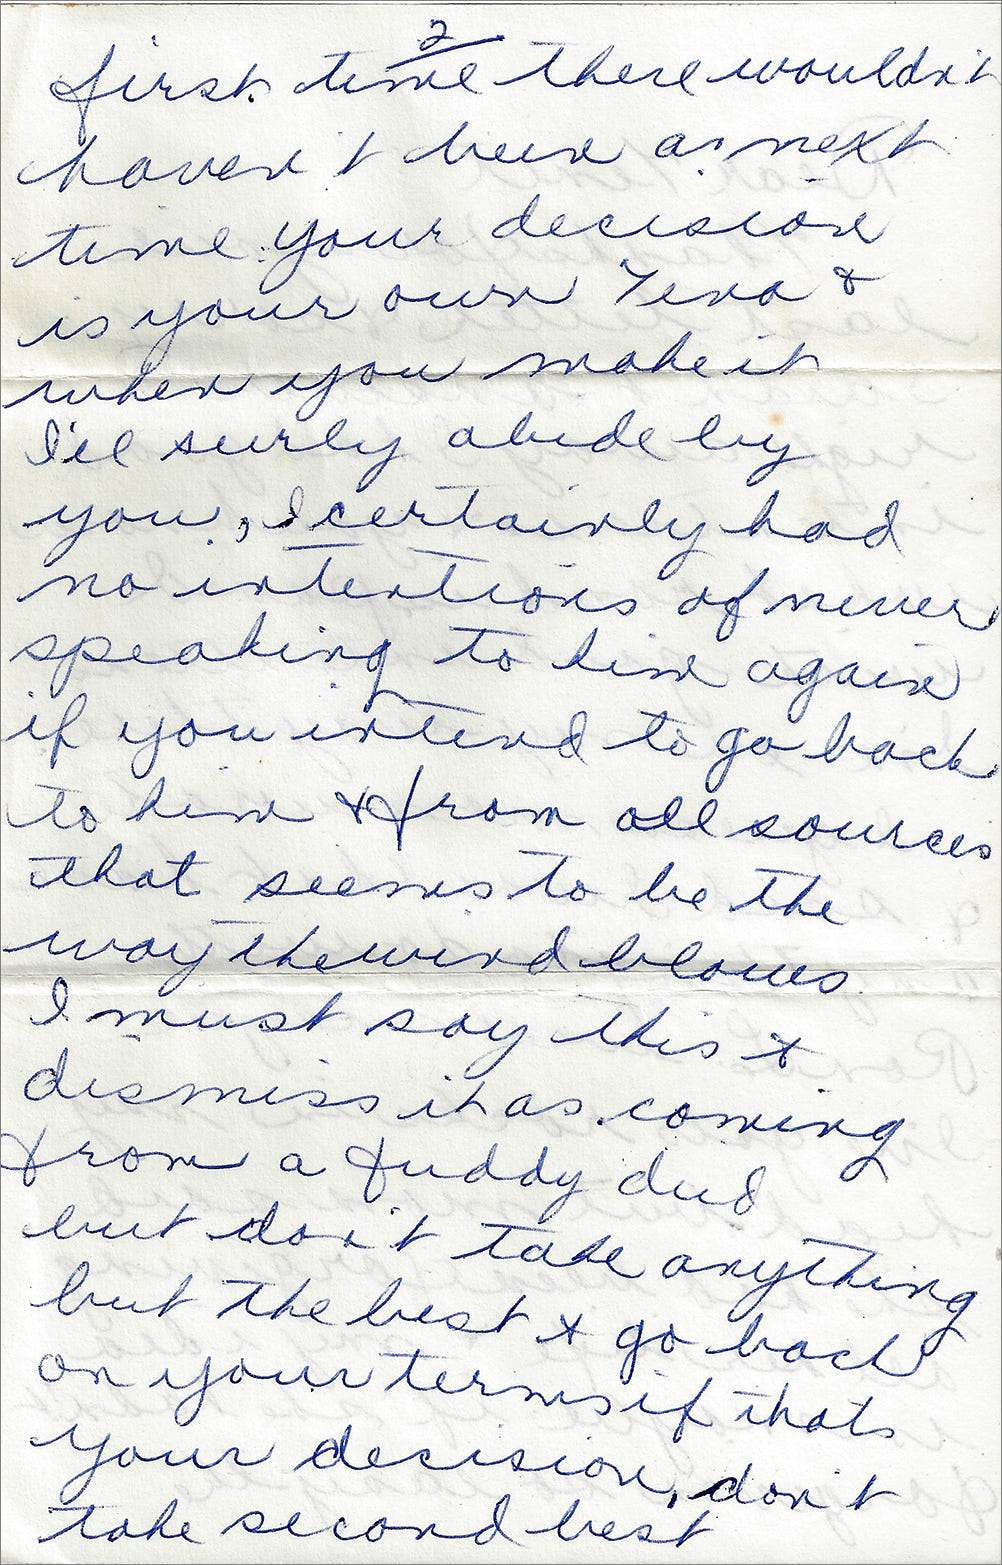 2
first time there wouldn't
haven't been a next
time your decision
is your own Tena &
when you make it
I'll surly abide by
you, I certainly had
no intentions of never
speaking to him again
if you intend to go back
to him & from all sources
that seems to be the
way the wind blows
I must say this &
dismiss it as coming
from a fuddy dud
but don't take anything
but the best & go back
on your terms if thats
your decision, don't
take second best